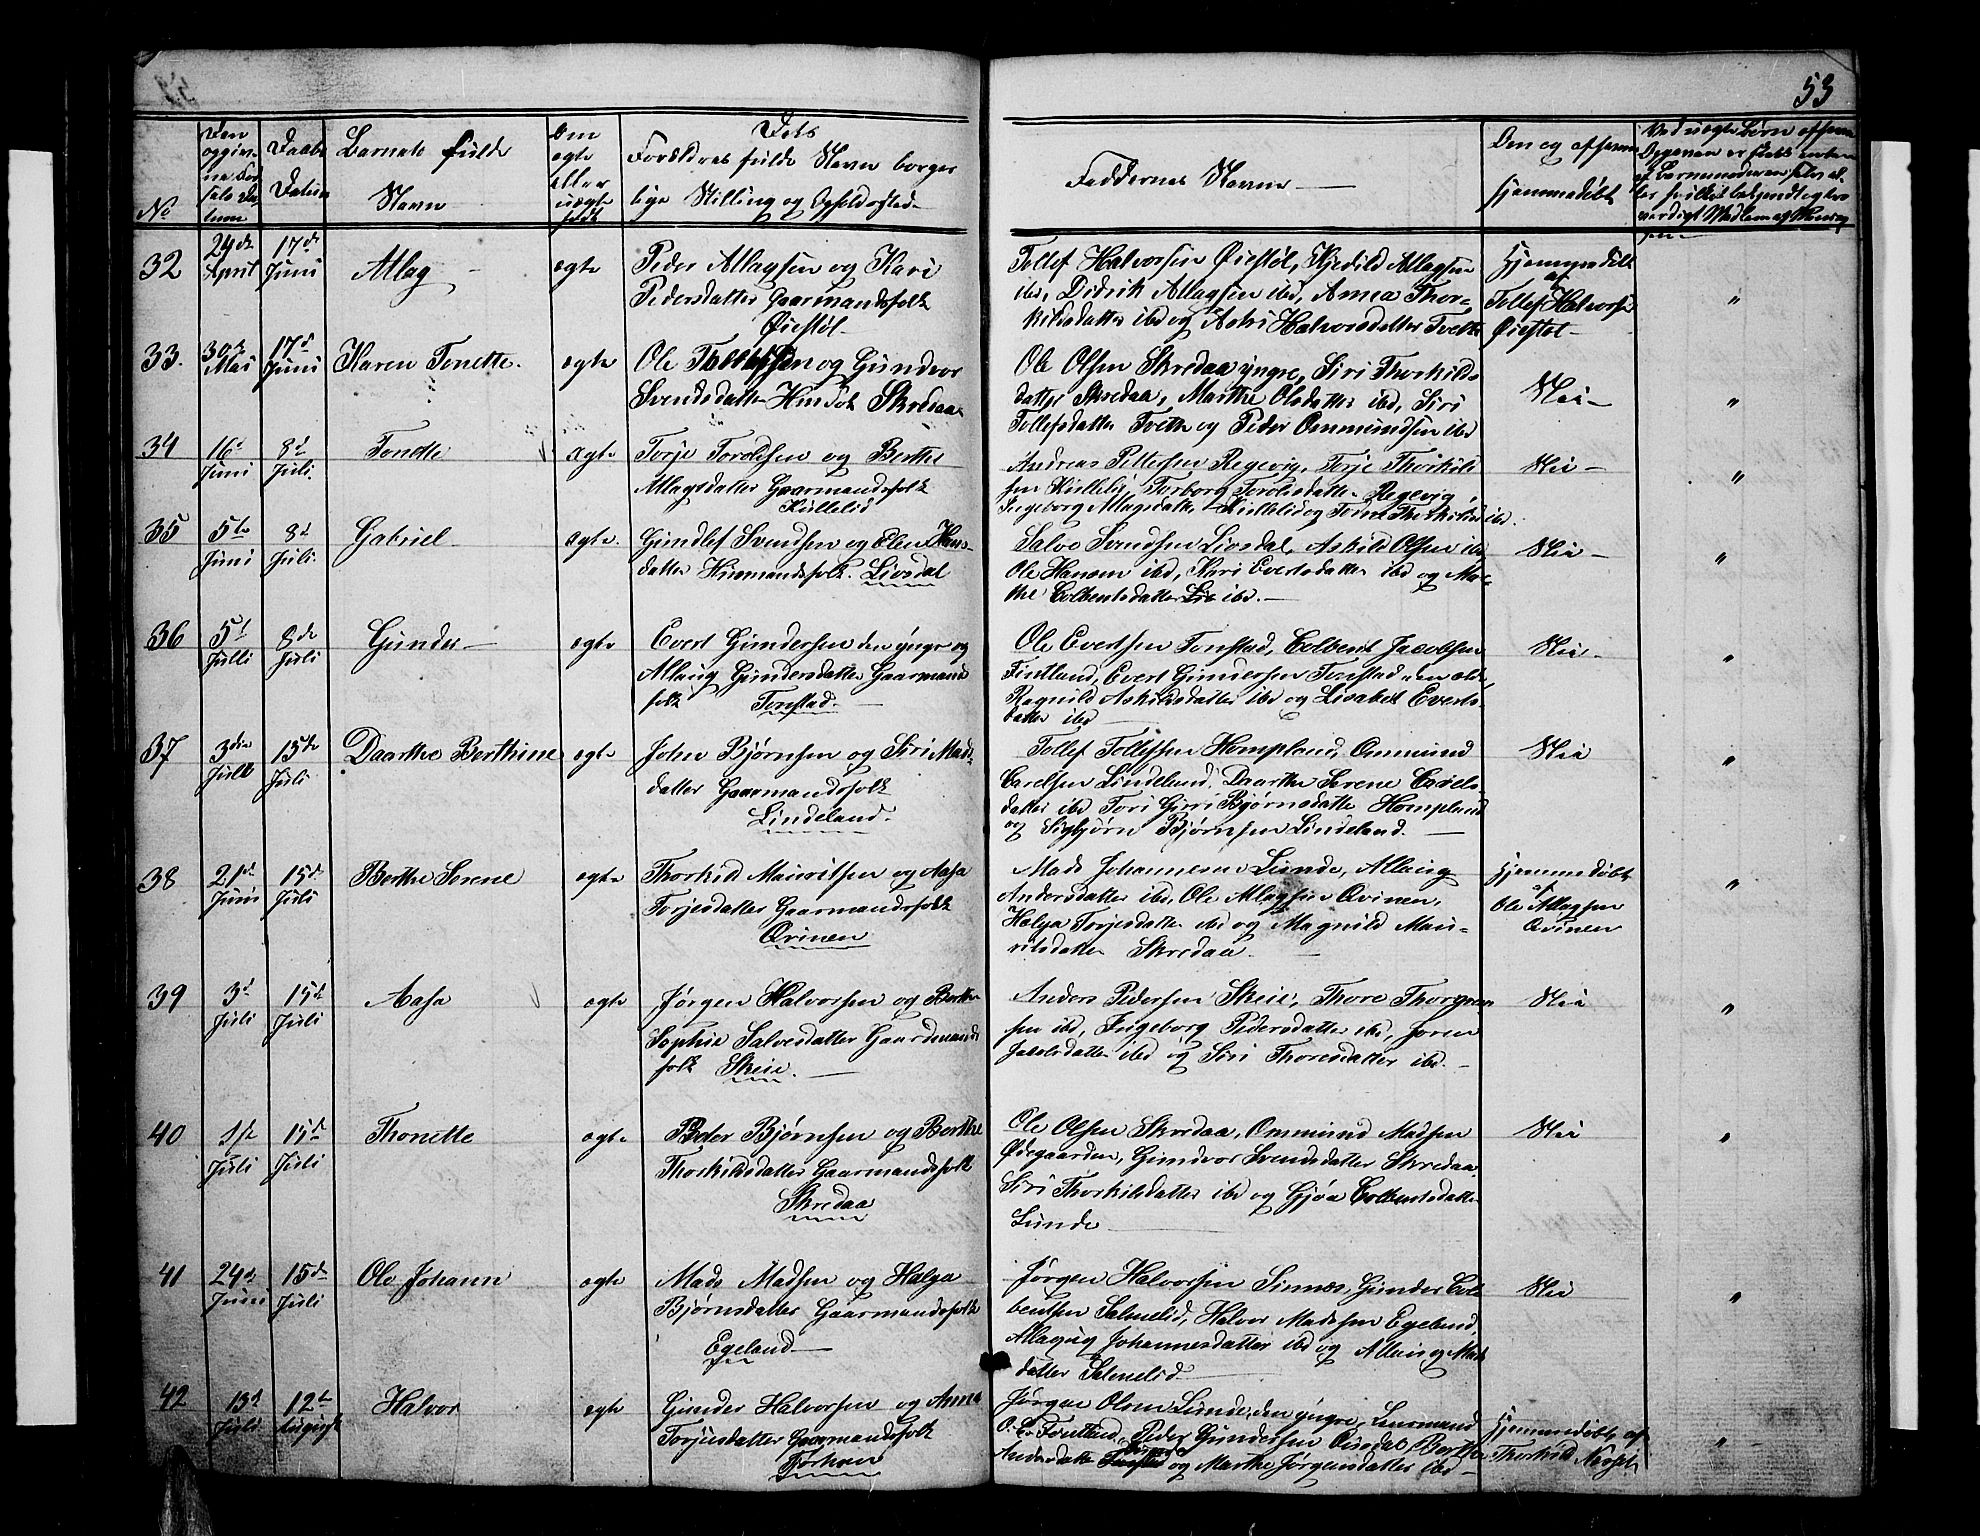 53
No
Den opgivne Fødsels Datum
Daabs Datum
Barnets fulde Navn
Om ægte eller uægte født
Dets Forældres fulde Navn borgerlige Stilling og Opholdssted
Faddernes Navne
Om og af hvem hjemmedøbt
32
24de April
17de Juni
Atlag
ægte
Peder Atlagsen og Kari
Pedersdatter Gaarmandsfolk
Øiestøl
Tollef Halvorsen Øiestøl, Kjedild Atlagsen
ibd, Didrik Atlagsen ibd, Anna Thor-
kildsdatter ibd og Aski Halvorsdatter Tveth
Hjemmedøbt
af
Tollef Halvorsen
Øiestøl
"
33.
30de Mai
17d Juni
Karen Tonette.
ægte
Ole Tollefsen og Gundvor
Svendsdatter Skredaa
Ole Olsen Skredaa yngre, Siri Thorkilds
datter Skredaa, Marthe Olsdatter ibd, Siri
Tollefsdatter Tveth og Peder Ommundsen ibd
Nei
"
34
16d Juni
8d Juli.
Tonette
ægte
Torje Torolssen og Berthe
Atlagsdatter Gaarmandsfolk
Kvillelid
Andreas Pettersen Regevig, Torje Thorkild
sen Torborg Torolsdatter Regevig,
Ingeborg Atlagsdatter og Thorkildsd ibd.
Nei
"
35
5te Juni
8d Juli.
Gabriel
ægte.
Gundlef Svendsen og Elen Hans-
datter Husmandsfolk. Liosdal
Salve Svendsen Liosdal, Askild Olsen ibd,
Ole Hansen ibd, Kari Evertsdatter ibd og Mar-
the Colbentsdatter ibd.
Nei
"
36
5t Julli
8de Juli
Gunder
ægte
Evert Gundersen den yngre og
Atlaug Gundersdatter Gaarmands
folk Tonstad.
Ole Evertsen Tonstad, Colbent Jacobsen
Fintland, Evert Gundersen Tonstad den ældr,
Ragnild Askildsdatter ibd og Lisabet Everts-
datter ibd
Nei
"
37
3die Juli
15de Juli
Daarthe Berthine
ægte
John Bjørnsen og Siri Mads-
datter Gaarmandsfolk
Lindeland.
Tollef Tollefsen Hompland, Ommund
Carelsen Lindeland, Daarthe Serene Carels-
datter ibd Tori Bjørnsdatter Hompland
og Sigbjørn Bjørnsen Lindeland.
Nei
"
38
21d Juni
15d Juli
Berthe Serene
ægte
Thorkild Mauritsen og Aasa
Torjesdatter Gaarmandsfolk
Qvinen
Mads Johannesen Lunde, Atlaug
Andersdatter ibd, Ole Atlagsen Qvinen,
Helga Torjesdatter ibd og Magnild Mau-
ritsdatter Skredaa.
Hjemmedøbt
af
Ole Atlagsen
Qvinen
"
39
3d Juli
15d Juli
Aasa
ægte
Jørgen Halvorsen og Berthe
Sophie Salvesdatter Gaardmands
folk Skeie.
Anders Pedersen Skeie, Thore Thorgrim
sen ibd, Ingeborg Pedersdatter ibd, Joren
Jacobsdatter ibd og Siri Thoresdatter ibd.
Nei
"
40
1ste Juli
15d Juli
Thonette
ægte
Peder Bjørnsen og Berthe
Thorkildsdatter Gaarmandsfolk
Skredaa
Ole Olsen Skredaa, Ommund Madsen
Ødegaarden, Gundvor Svendsdatter Skredaa
Siri Thorkilsdatter ibd og Gjøa Colbentsdatter
Lunde
Nei
"
41
24d Juni
15de Juli
Ole Johann
ægte
Mads Madsen og Helga
Bjørnsdatter Gaarmandsfolk
Egeland
Jørgen Halvorsen Sinnæs, Gunder Col-
bentsen Salmelid, Halvor Madssen Egeland,
Atlagug Johannesdatter ibd og Atlaug Mads
datter Salmelid
Nei
"
42
13d Juli
12te August
Halvor
ægte
Gunder Halvorsen og Anna
Torjusdatter Gaarmandsfolk
Jørgen Olsen Lunde, den yngre,
Peder Gundersen Ousdal, Berthe
Andersdatter og Marthe Jørgensdatter ibd
Hjemmedøbt af
Thorkild Nesset
"